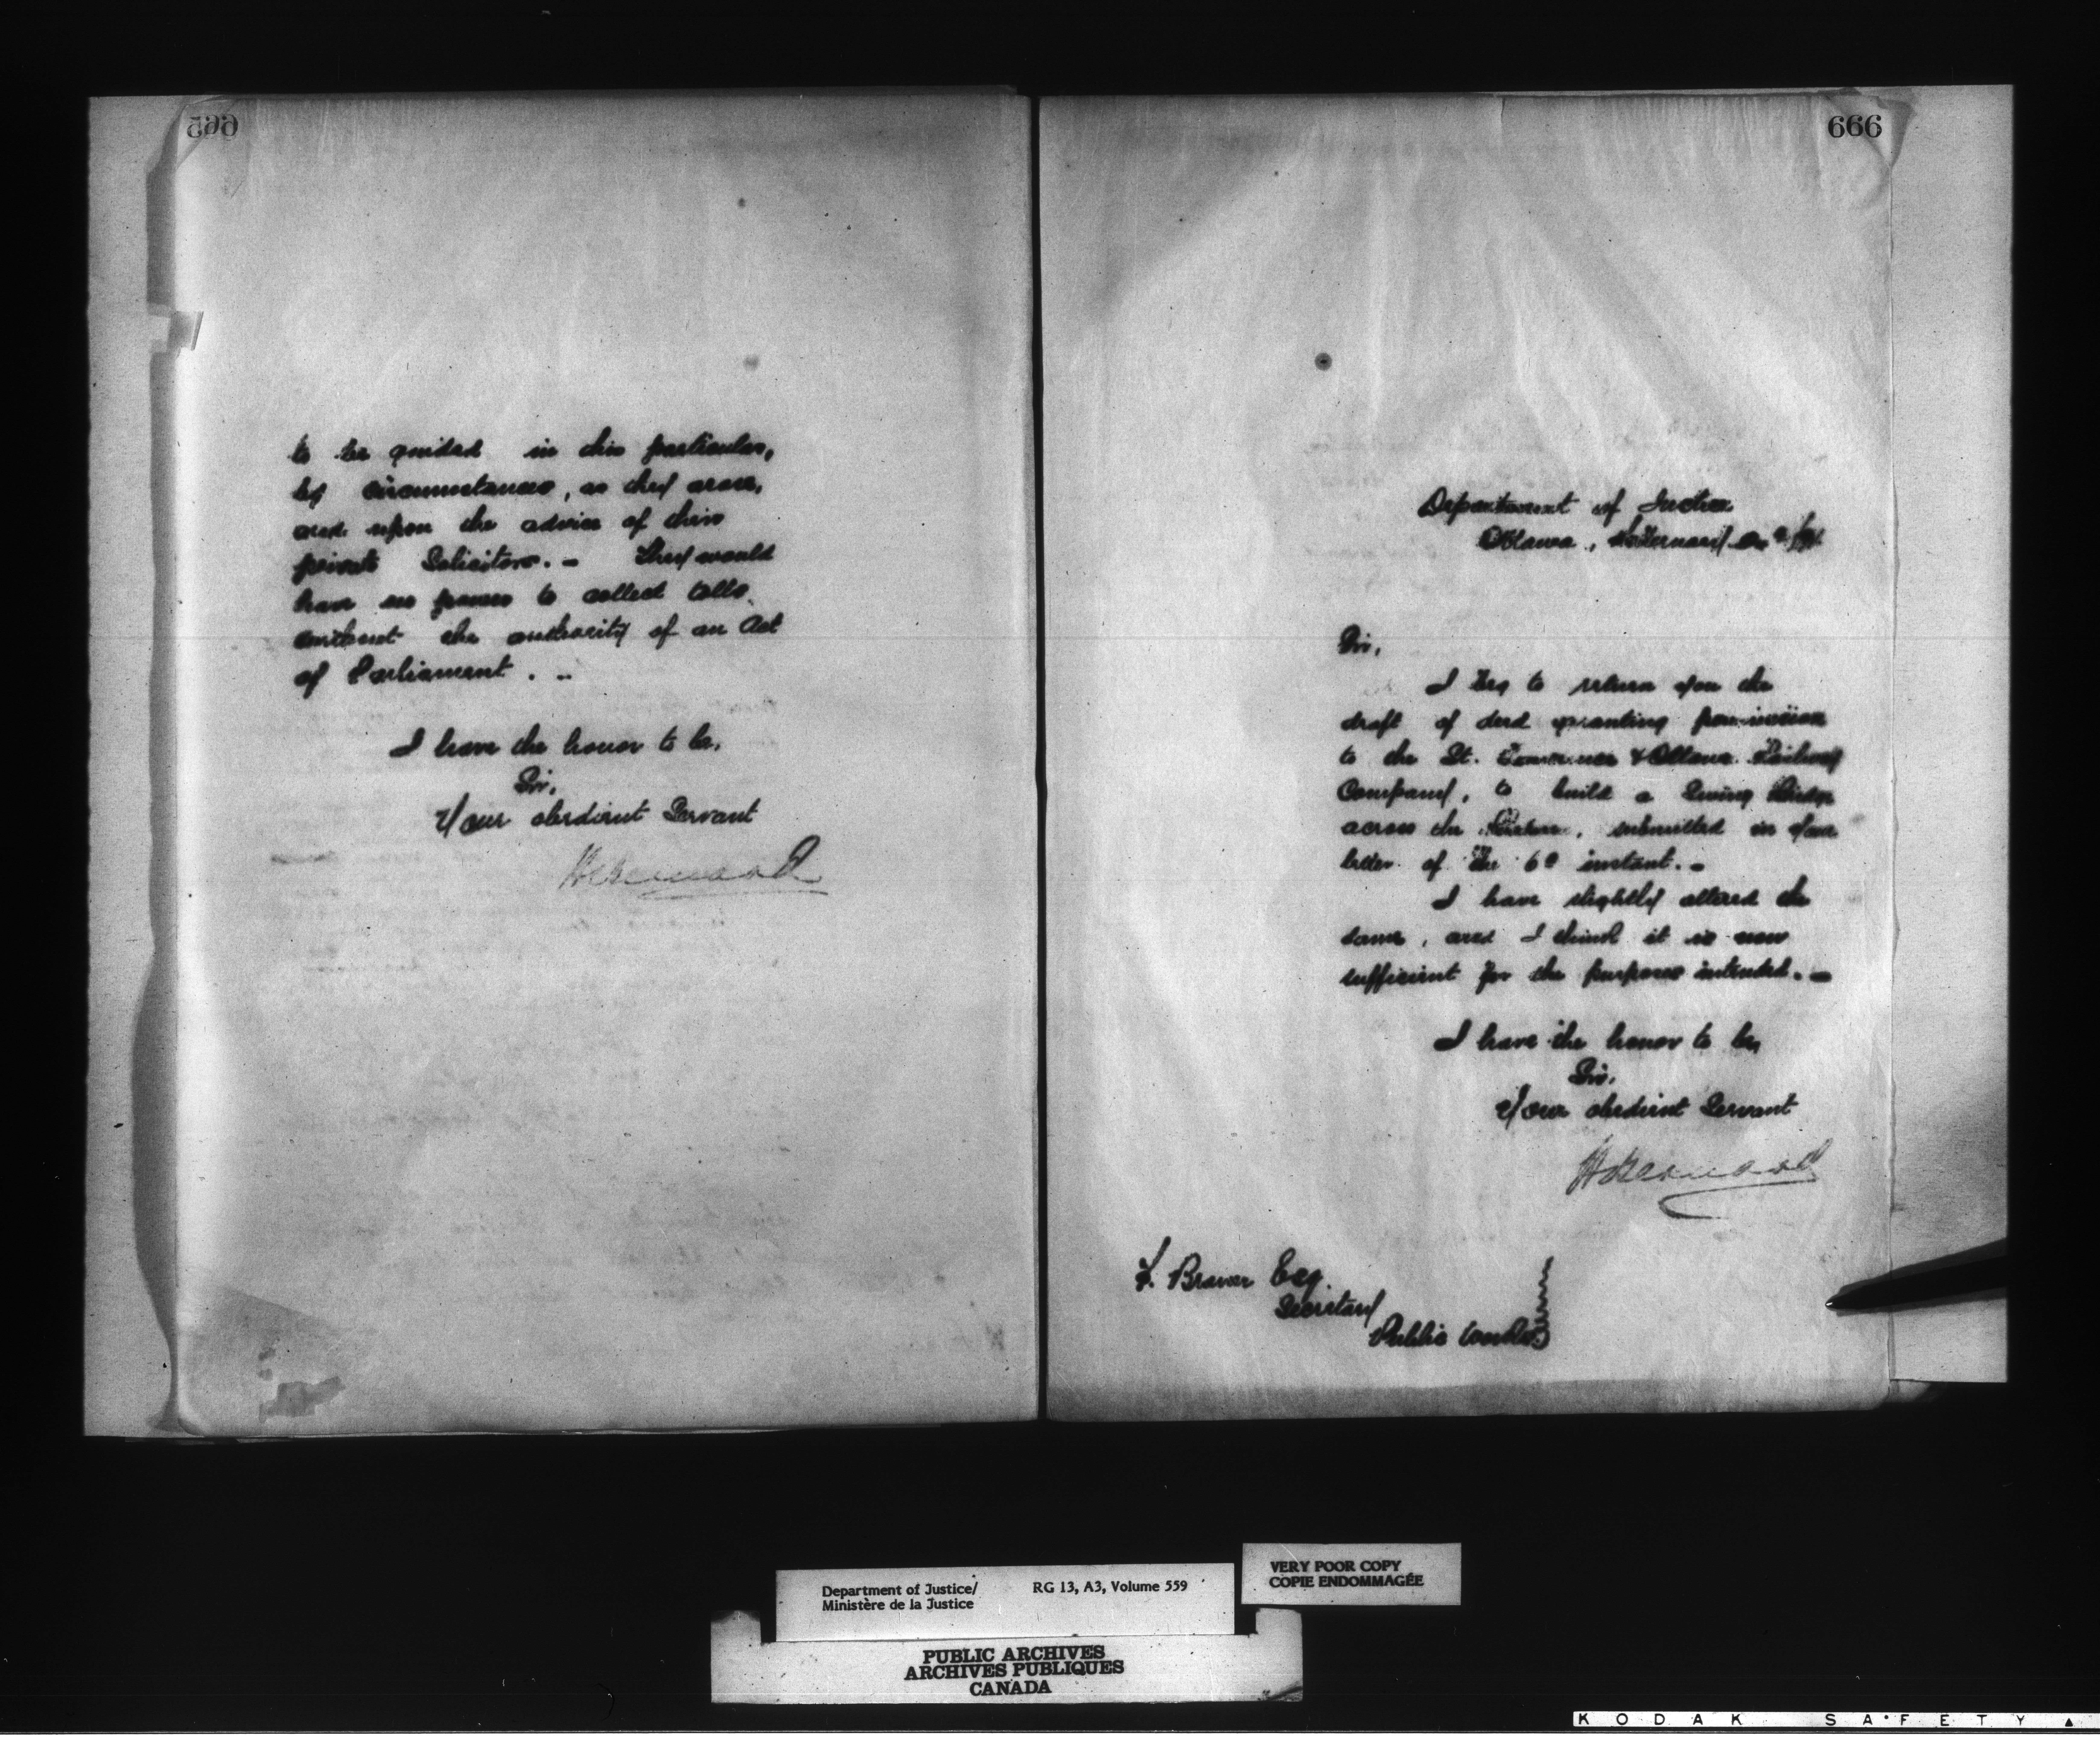 665
to be guided in this particular,
by circumstances, as they arose,
and upon the advice of their
private Solicitors. - They would
have no power to collect tolls
without the authority of an Act
of Parliament. -
I have the honor to be,
Sir,
Your obedient Servant
H Bernard
666
Department of Justice
Ottawa, February
Sir,
I beg to return you the
draft of deed granting permission
to the St. Lawrence & Ottawa Railway
Company, to build a Swing Bridge
across the, submitted in your
letter of the 6th instant. -
I have slightly altered the
same, and I think it is now
sufficient for the purposes intended. -
I have the honor to be,
Sir,
Your obedient Servant
H Bernard
F. Braun Esq.
Secretary
Public Works
Department of Justice/ RG 13, A3, Volume 559
Ministère de la Justice
VERY POOR COPY
COPIE ENDOMMAGÉE
PUBLIC ARCHIVES
ARCHIVES PUBLIQUES
CANADA
KODAK SAFETY